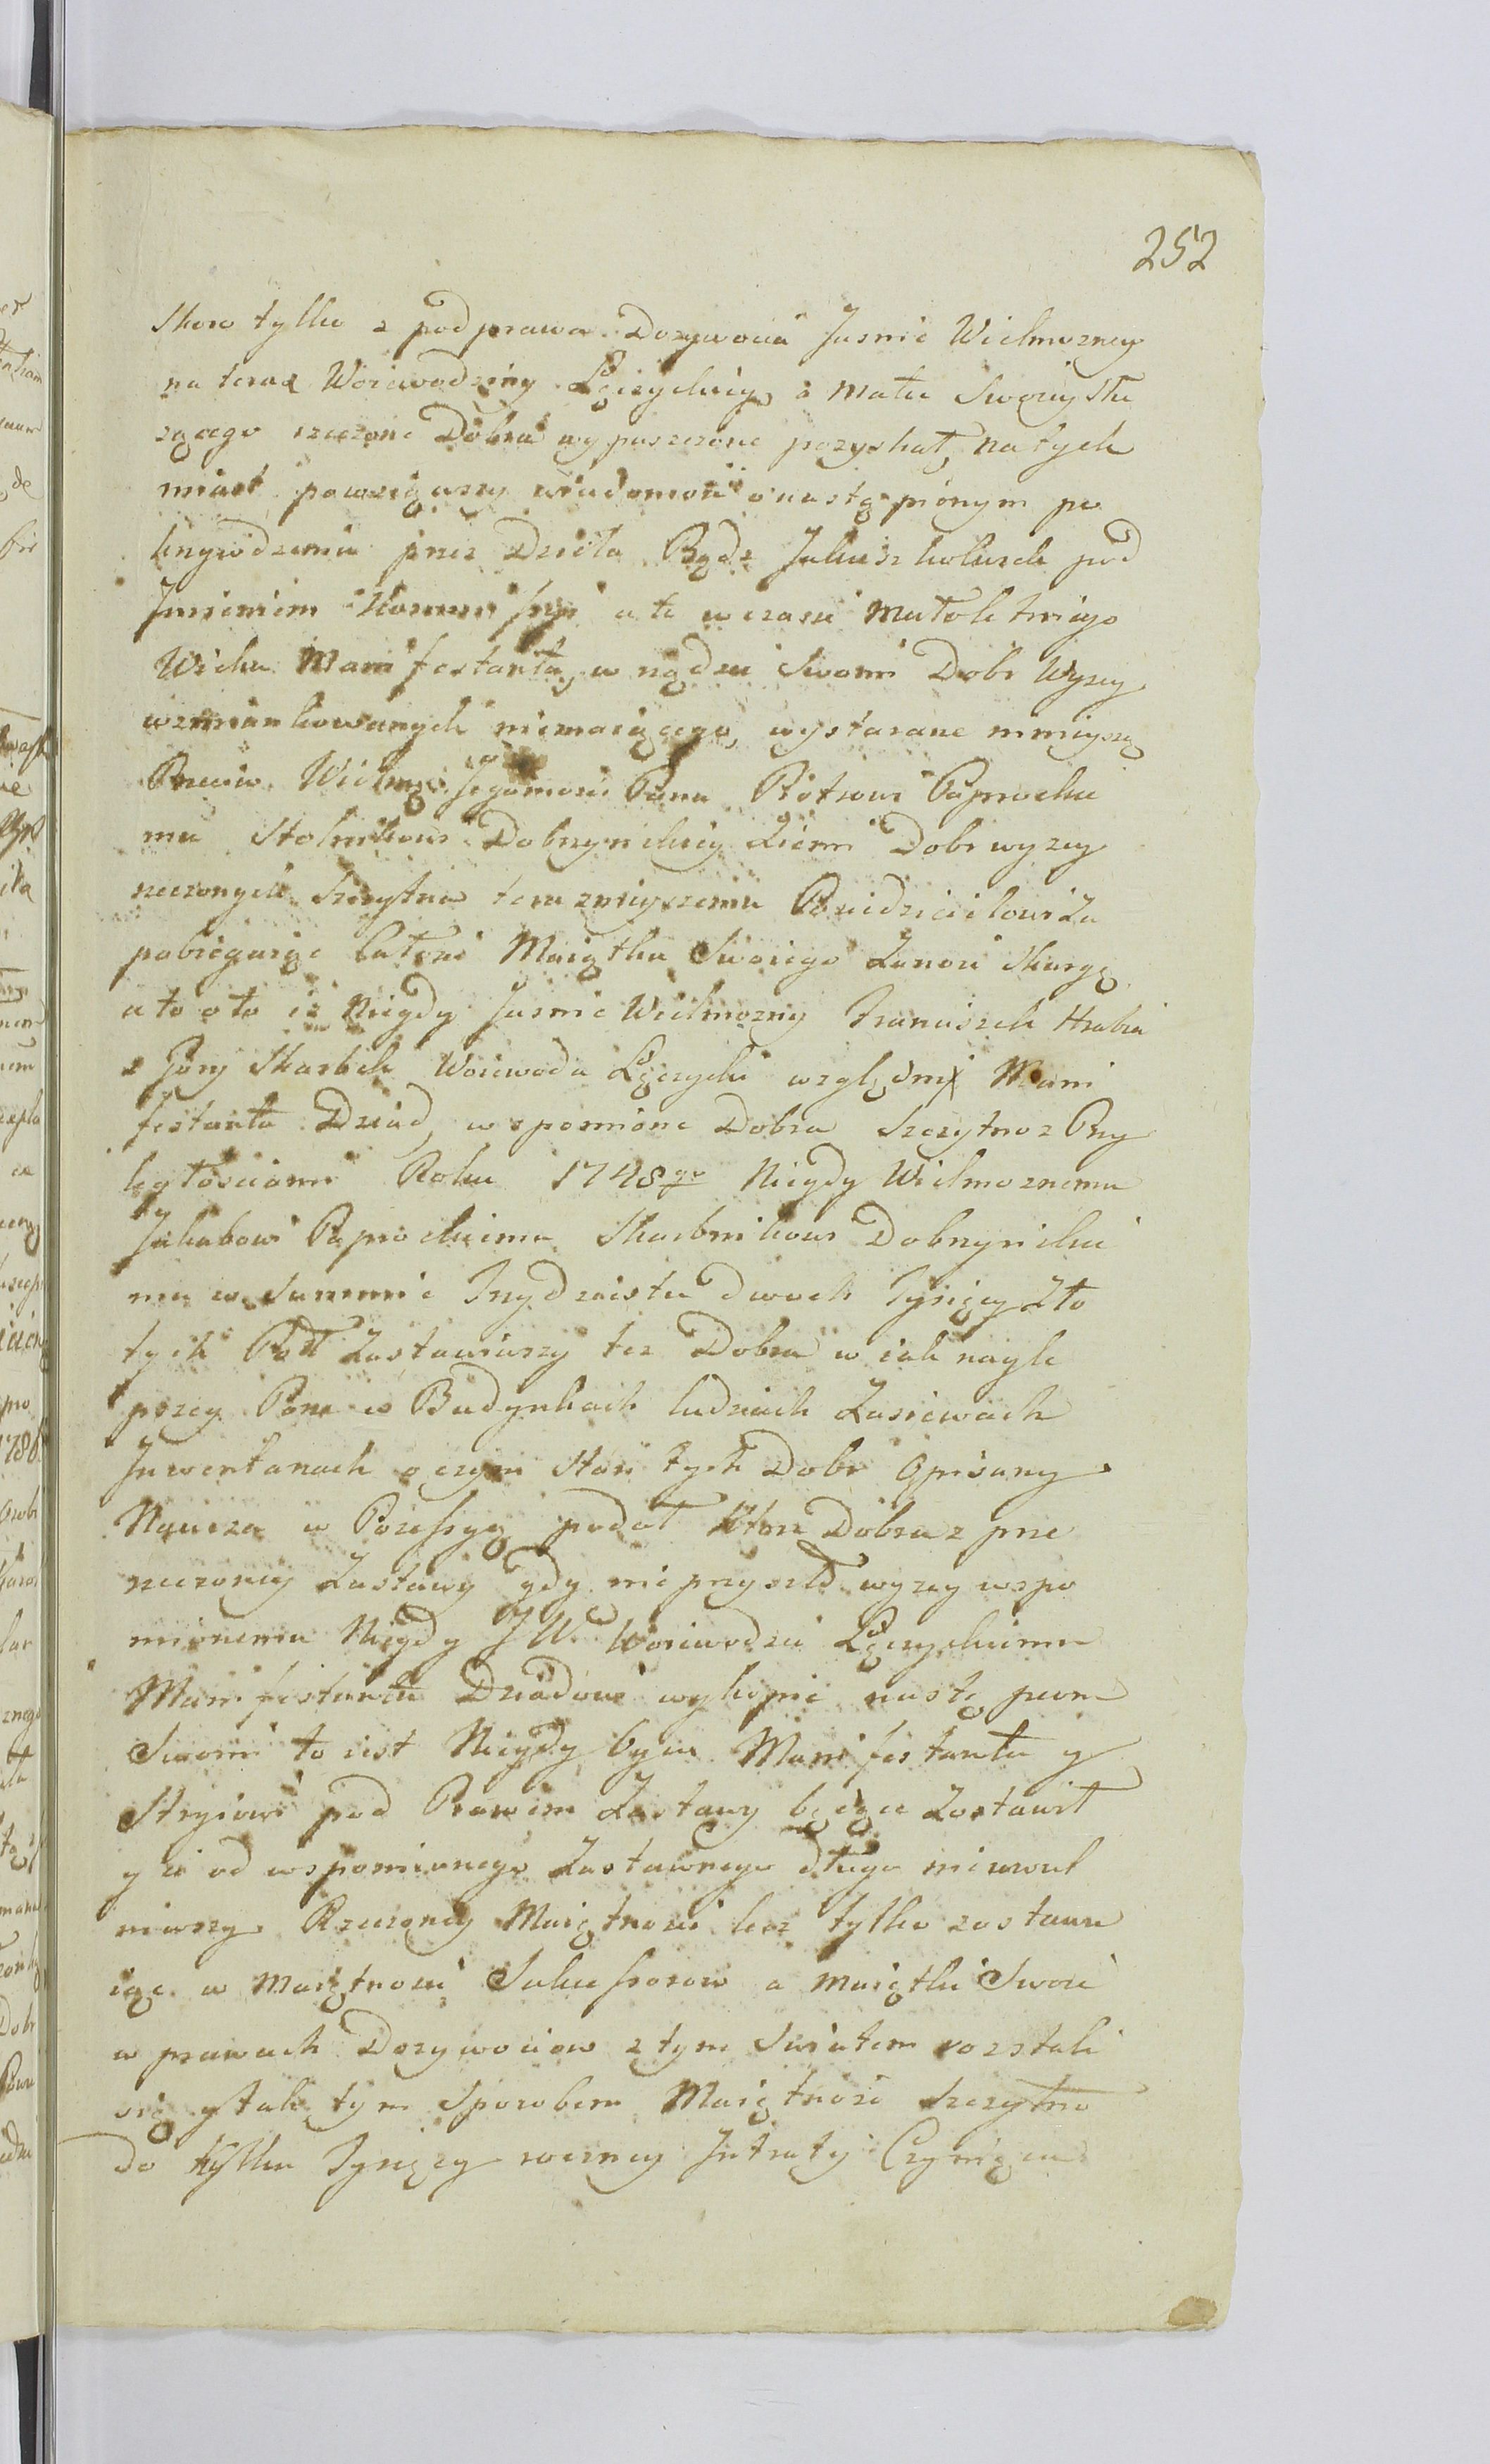 252
Skoro tylko z pod prawa Dozywocia Jasnie Wielmozney
na teraz Woiewodziny Łęczyckiey, a Matki Swoiey słu
zącego rzeczone Dobra wypuszczone pozyskał, natych
miast powziąwszy wiadomość o nastąpionym po
krzywdzeniu przez Dzieła Bądz Jakieszkolwiek pod
Jmieniem Kommissyi a te w czasie Małoletniego
Wieku Manifestanta, w rządzie Swoim Dobr Wyzey
wzmiankowanych niemaiącego, wystarane mnieyszą
Przeciw Wielmu Jegomosci Panu Piotrowi Paprockie
mu Stolnikowi Dobrzynskiey Ziemi Dobr wyzey
rzeczonych Szczytna terazniejszemu Possidzicielowi Za
pobiegaiąc całości Maiątku Swoiego Zanosi Skargę
a to o to iz Niegdy Jasnie Wielmozny Franciszek Hrabia
z Gory Skarbek Woiewoda Łęczycki względny Mani
festanta Dziad, wspomnione Dobra Szczytno z Przy
ległościami Roku 1748go Niegdy Wielmoznemu
Jakubowi Paprockiemu Skarbnikowi Dobrzynskie
mu w Summie Trzydziestu dwoch Tysięcy Zło
tych Pol Zastawiwszy też Dobra w iak nayle
pszey Porze w Budynkach ludziach Zasiewach
Jnwentarzach o czym Stan tych Dobr Opisany
Naucza w Possessyą podał Ktore Dobra z prze
rzeczoney Zastawy gdy nie przyszło wyzey wspo
mnionemu Niegdy J W Woiewodzie Łęczyckiemu
Manifestanta Dziadowi wykupić następcom
Swoim to iest Niegdy Oycu Manifestanta y
Stryiowi pod Prawem Zastawy będące Zostawił
y ci od wspomnionego Zastawnego długu nieuwol
niwszy Rzeczoney Maiętności lecz tylko zostawu
iąc w Maiętności Sukcessorow a maiątki Swoie
w prawach Dozywociow z tym Swiatem rozstali
się y tak tym Sposobem Maiętność Szczytno
do kilku Tysięcy roczney Jntraty Czyniąca